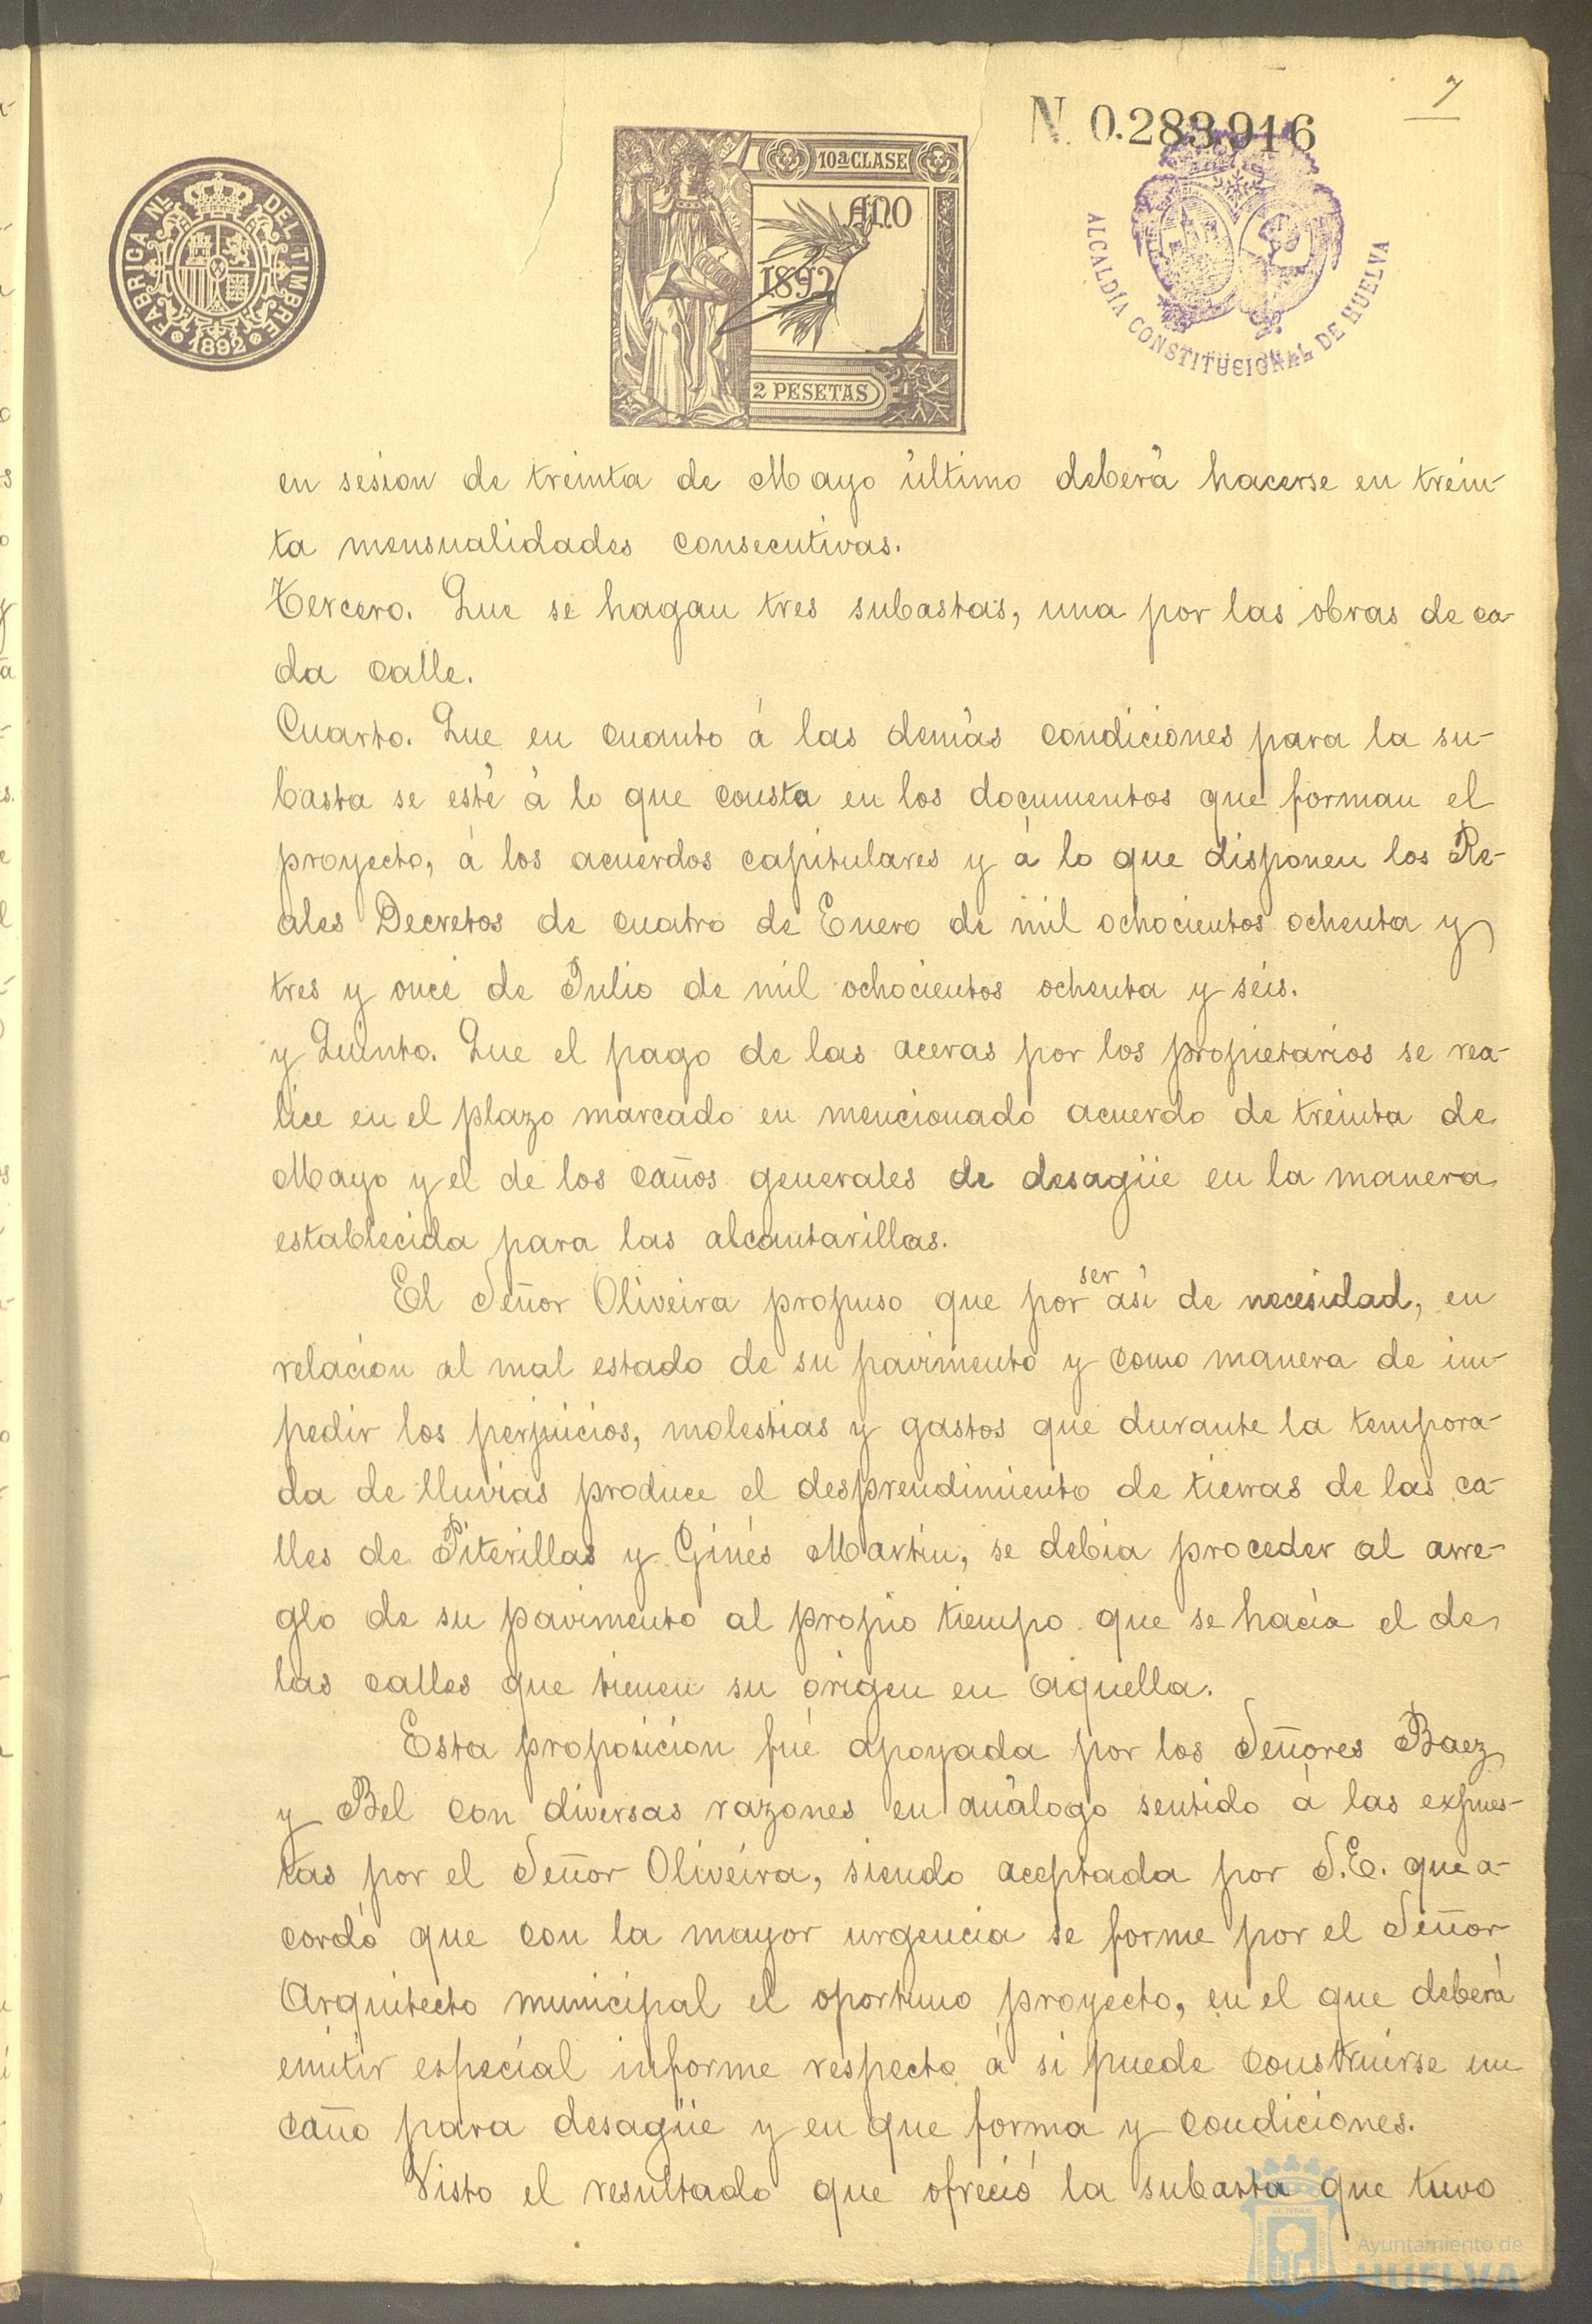 7
N. 0.283,916
FABRICA NL. DEL TIMBRE
1892
10ª CLASE
AÑO
1892
2 PESETAS
ALCALDÍA CONSTITUCIONAL DE HUELVA
en sesion de treinta de Mayo último deberá hacerse en trein-
ta mensualidades consecutivas.
Tercero. Que se hagan tres subastas, una por las obras de ca-
da calle.
Cuarto. Que en cuanto á las demás condiciones para la su-
basta se esté á lo que consta en los documentos que forman el
proyecto, á los acuerdos capitulares y á lo que disponen los Re-
ales Decretos de cuatro de Enero de mil ochocientos ochenta y
tres y once de Julio de mil ochocientos ochenta y seis.
y Quinto. Que el pago de las aceras por los propietarios se rea-
lice en el plazo marcado en mencionado acuerdo de treinta de
Mayo y el de los caños generales de desagüe en la manera
establecida para las alcantarillas.
El Señor Oliveira propuso que por ser así de necesidad, en
relacion al mal estado de su pavimento y como manera de im-
pedir los perjuicios, molestias y gastos que durante la tempora-
da de lluvias produce el desprendimiento de tierras de las ca-
lles de Piterillas y Ginés Martin, se debia proceder al arre-
glo de su pavimento al propio tiempo que se hacía el de
las calles que tienen su origen en aquella.
Esta proposicion fué apoyada por los Señores Baez
y Bel con diversas razones en análogo sentido á las expues-
tas por el Señor Oliveira, siendo aceptada por S.E. que a-
cordó que con la mayor urgencia se forme por el Señor
Arquitecto municipal el oportuno proyecto, en el que deberá
emitir especial informe respecto á si puede construirse un
caño para desagüe y en que forma y condiciones.
Visto el resultado que ofreció la subasta que tuvo
Ayuntamiento de
HUELVA